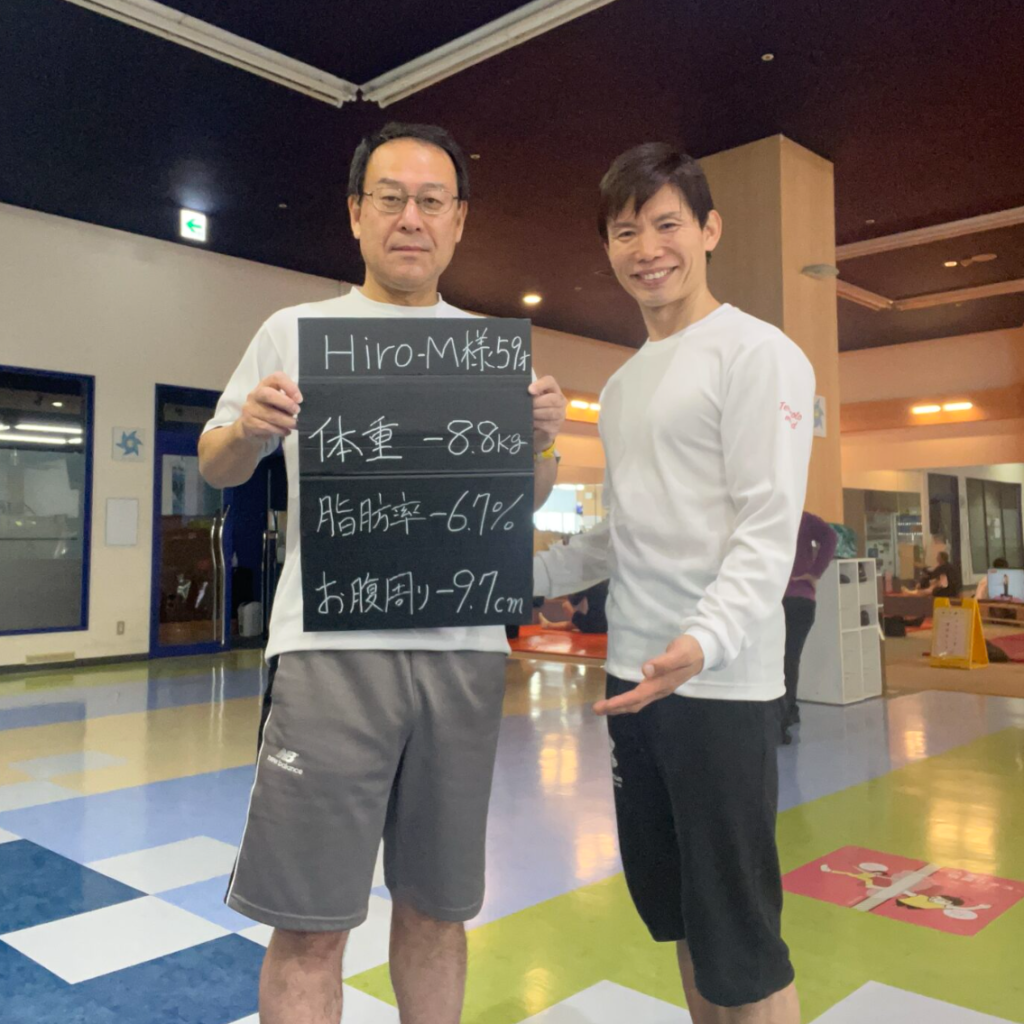 Hiro-M様59才
体重 -8.8kg
脂肪率-6.7%
お腹周り-9.7cm
NB
new balance